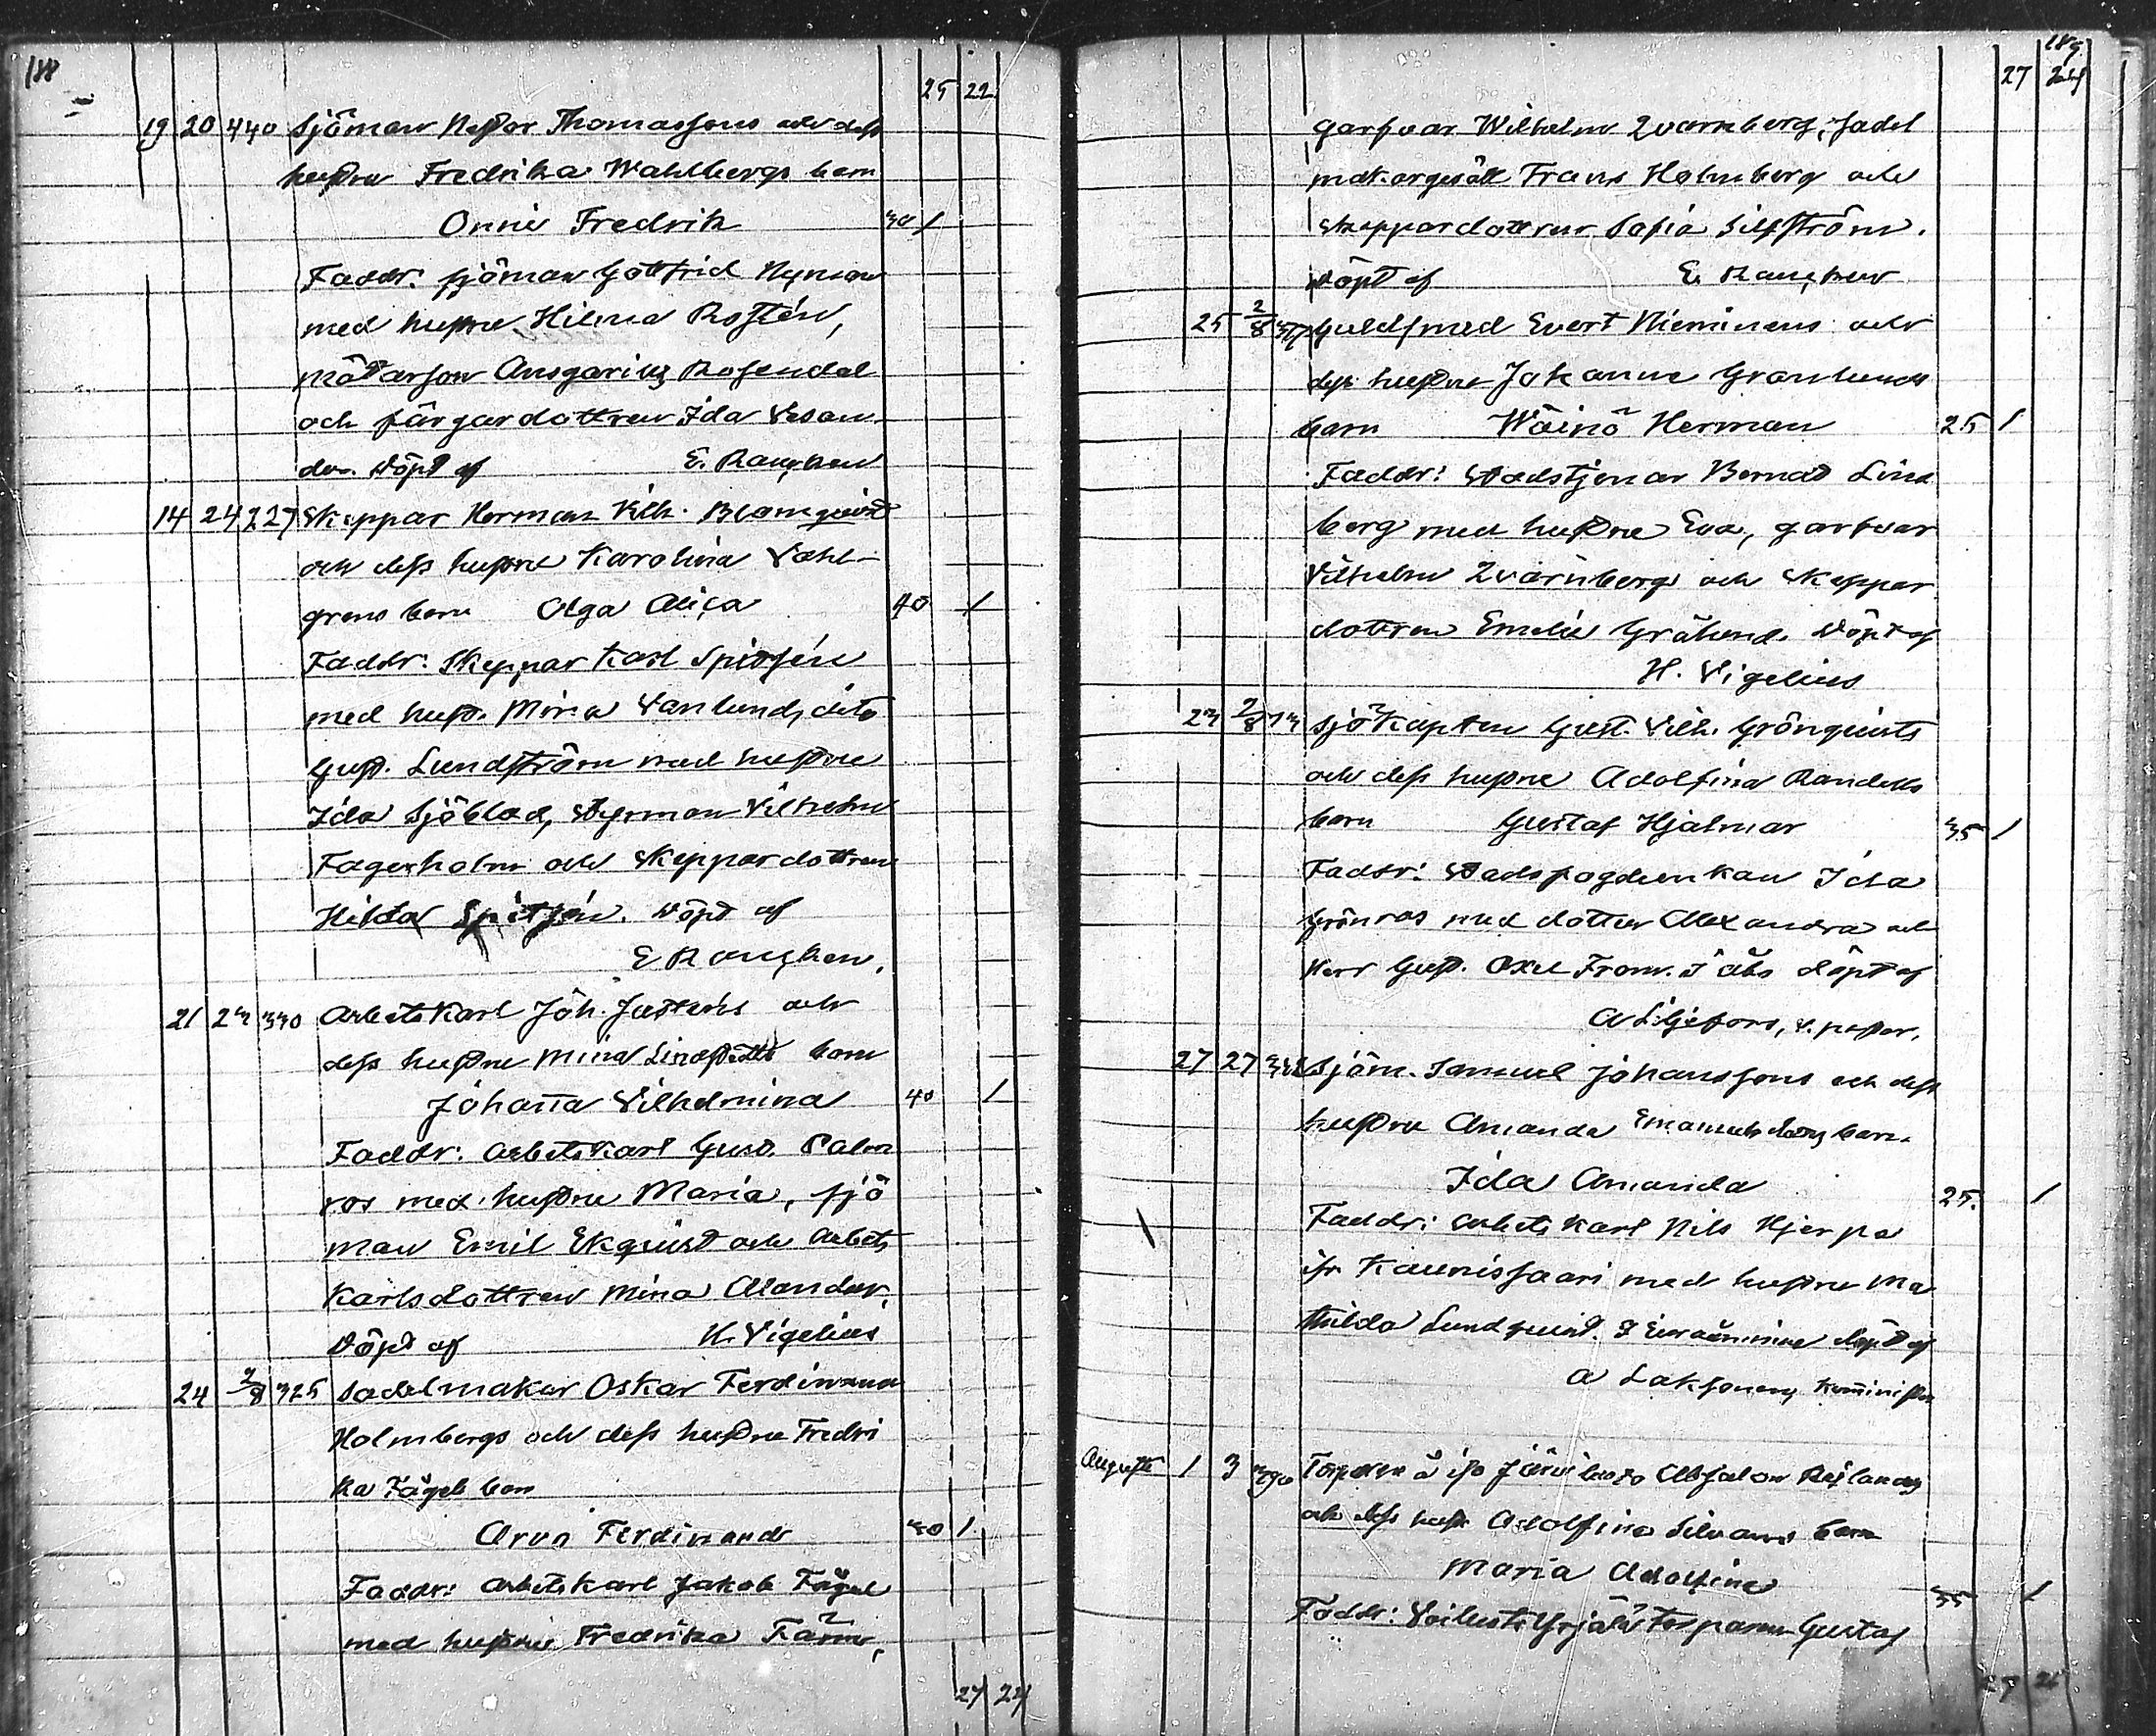 188
25 22
19 20 440 Sjöman Nestor Thomassons och dess
hustru Fredrika Wahlbergs barn
Onni Fredrik 30 1
Faddr: sjöman Gottfrid Nyman
med hustru Hilma Rostén,
Ansgarius Rosendal
och färgardottren Ida Vesan
der. Döpt af E. Rancken
14 24 227 Skeppar Herman Vilh. Blomqvist
och dess hustru Karolina Vahl-
grens barn Olga Alica 40 1
Faddr: Skeppar Karl Spitsén
med hust. Mina Vanlund, dito
Gust. Lundström med hustru
Ida Sjöblad, styrman Vilhelm
Fagerholm och skeppardottren
Hilda Spitsén. Döpt af
E Rancken.
21 23 330 Arbetskarl Joh. Justens och
dess hustru Mina Lindstedts barn
Johanna Vilhelmina 40 1
Faddr: arbetskarl Gust. Palm
ros med hustru Maria, sjö
man Emil Ekqvist och arbets
karlsdottren Mina Alander.
Döpt af H. Vigelius
24 2/8 325 Sadelmakar Oskar Ferdinand
Holmbergs och dess hustru Fredri
ka Fågels barn
Arvo Ferdinand 30 1
Faddr: arbetskarl Jakob Fågel
med hustru Fredrika Färm,
27 24
189
27 24
garfvar Wilhelm Qvarnberg, sadel
makargesäll Frans Holmberg och
skeppardottren Sofia Silfström.
Döpt af E. Rancken
25 2/8 Guldsmed Evert Nieminens och
dess hustru Johanna Granlunds
barn Wäinö Herman 25 1
Faddr: Stadstjenar Bernad Lind
berg med hustru Eva, garfvar
Vilhelm Qvarnberg och skeppar
dottren Emelie Grålund. Döpt af
H. Vigelius
23 2/8 73 Sjökapten Gust. Vilh. Grönqvists
och dess hustru Adolfina Randells
barn Gustaf Hjalmar 35 1
Faddr: Stadsfogdeenkan Ida
Grönros med dotter Alexandra och
Herr Gust. Axel From. I Åbo döpt af
A Liljefors, v. pastor.
27 27 Sjöm. Samuel Johanssons och dess
hustru Amanda Emanuelsdotters barn.
Ida Amanda 25. 1
Faddr: arbetskarl Nils Hjerpe
ifr. Kaunissaari med hustru Ma
thilda Lundqvist. I Euraåminne döpt af
A Laksonen, kominister
Augusti 1 3 390 Torparen å Iso Järviluoto Absalon Rejlanders
och dess hustr Adolfina Silvans barn
Maria Adolfina 35 1
Faddr: torparen Gustaf
27 25